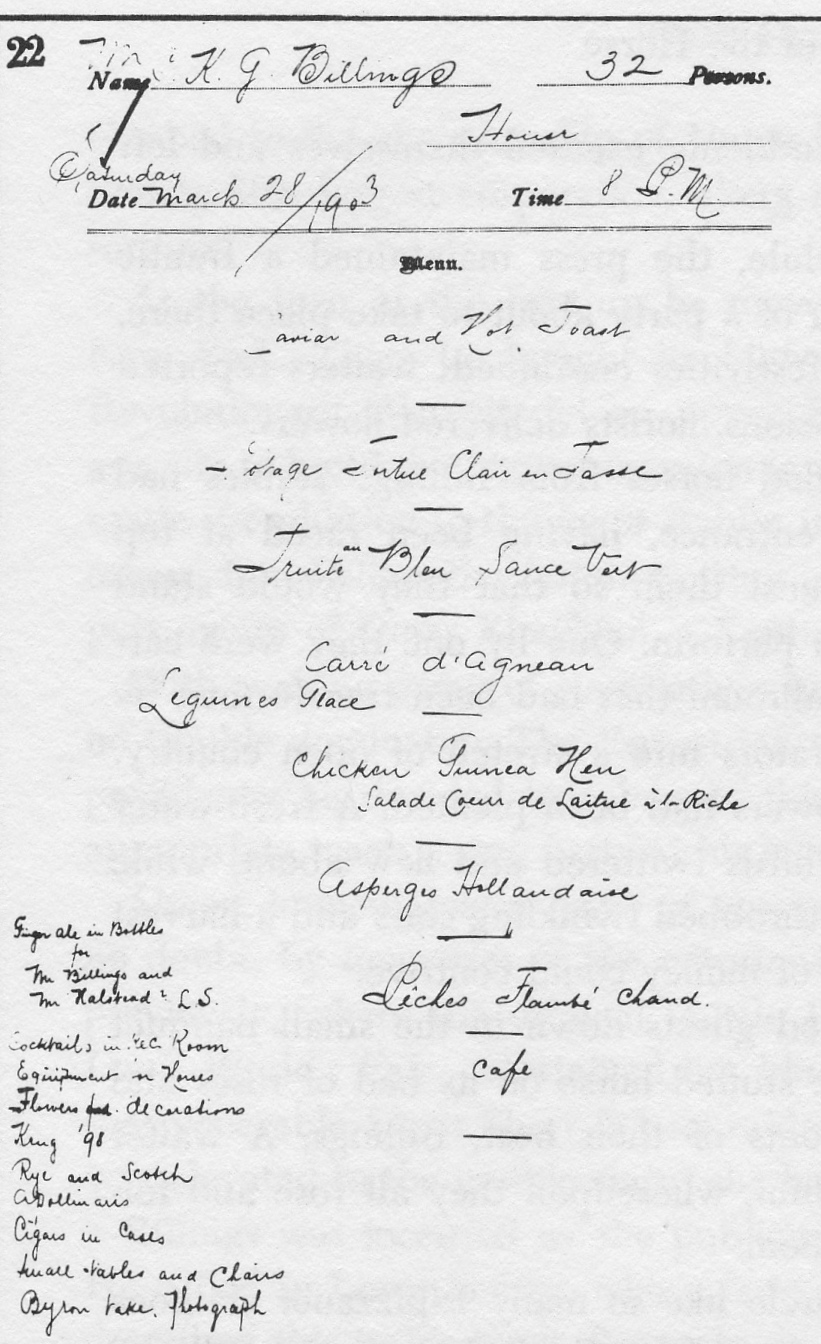 22
Name Mr K. G. Billings 32 Persons.
House
Saturday
Date March 28/1903 Time 8 P.M
Menu.
Caviar and Hot Toast
Potage Tortue Clair en Tasse
Truite au Bleu Sauce Vert
Carré d'agneau
Legumes Glace
Chicken Guinea Hen
Salade Coeur de Laitue à la Riche
Asperges Hollandaise
Pêches Flambé Chaud.
Cafe
Ginger ale in Bottles
for
Mr Billings and
Mr Halstead L.S.
Cocktails in Rec. Room
Equipment on Horses
Flowers decorations
Krug '98
Rye and Scotch
Apollinaris
Cigars in Cases
Small Tables and Chairs
Byron take. Photograph